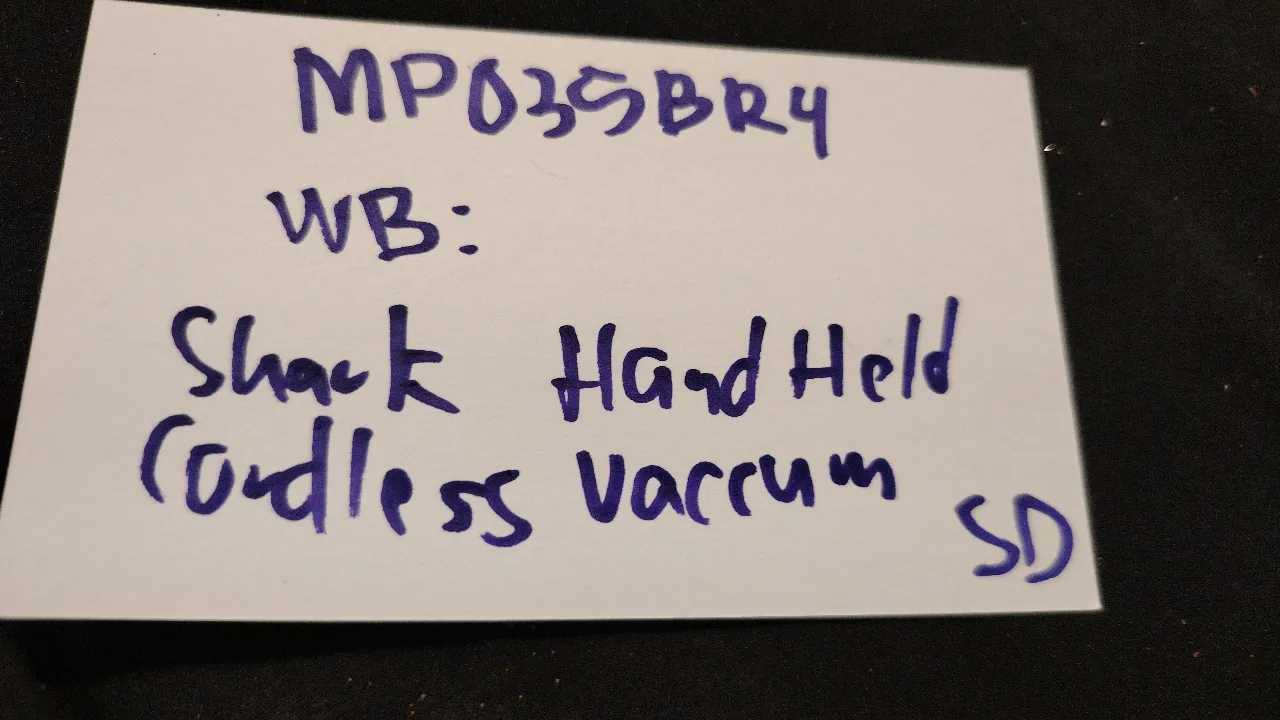 MP035BR4
WB:
Shark HandHeld
Cordless Vaccum
SD